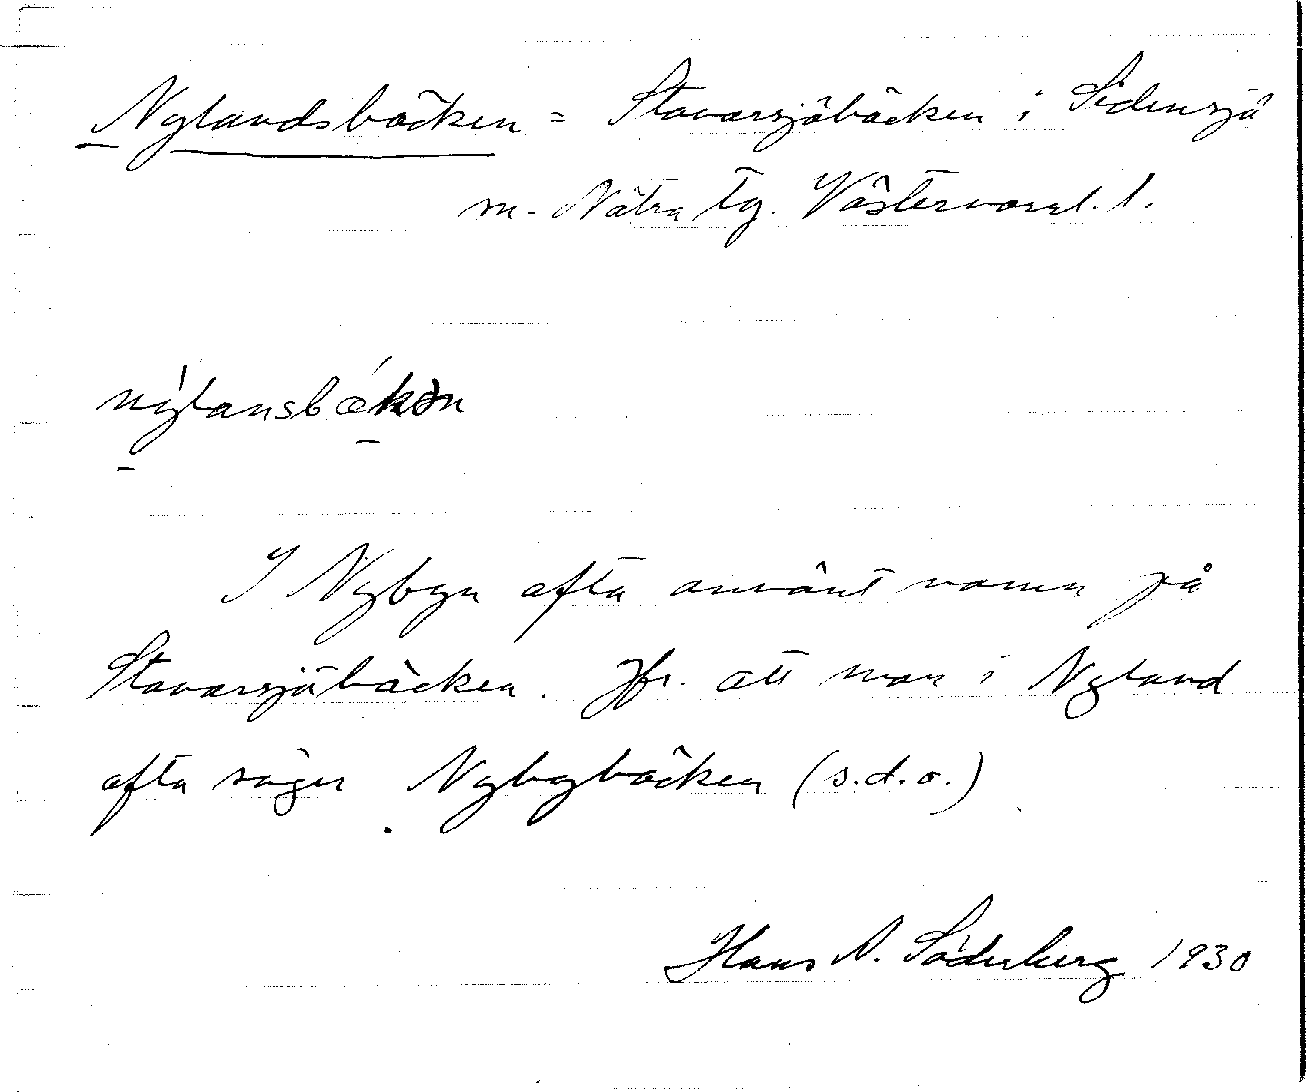 Nylandsbäcken = Stavarsjöbäcken i Sidensjö
m. Nätra tg. Västernorrl. l.
nýlansbǽkən
I Nybyn ofta använt namn på
Stavarsjöbäcken. Jfr. att man i Nyland
ofta säger Nybybäcken (s.d.o.)
Hans A. Söderberg 1930